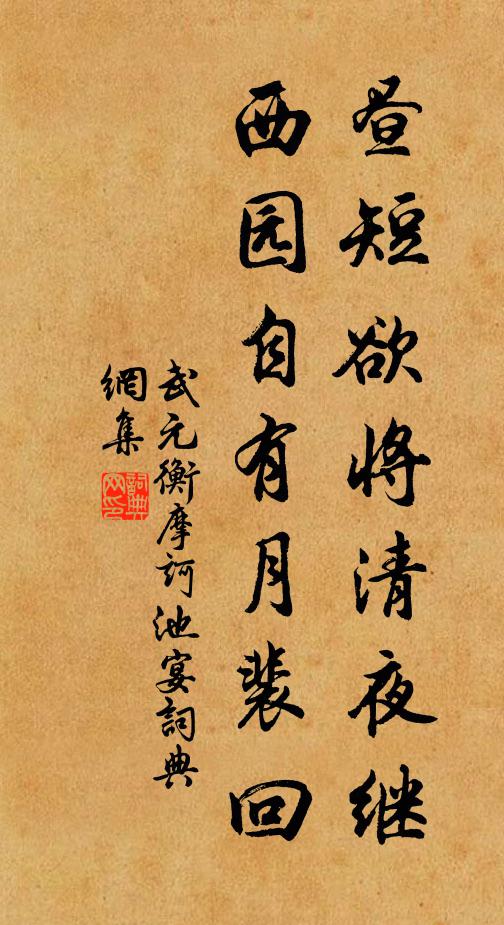 昼短欲将清夜继
西园自有月裴回
武元衡摩诃池宴詞典
網集
詞典网印